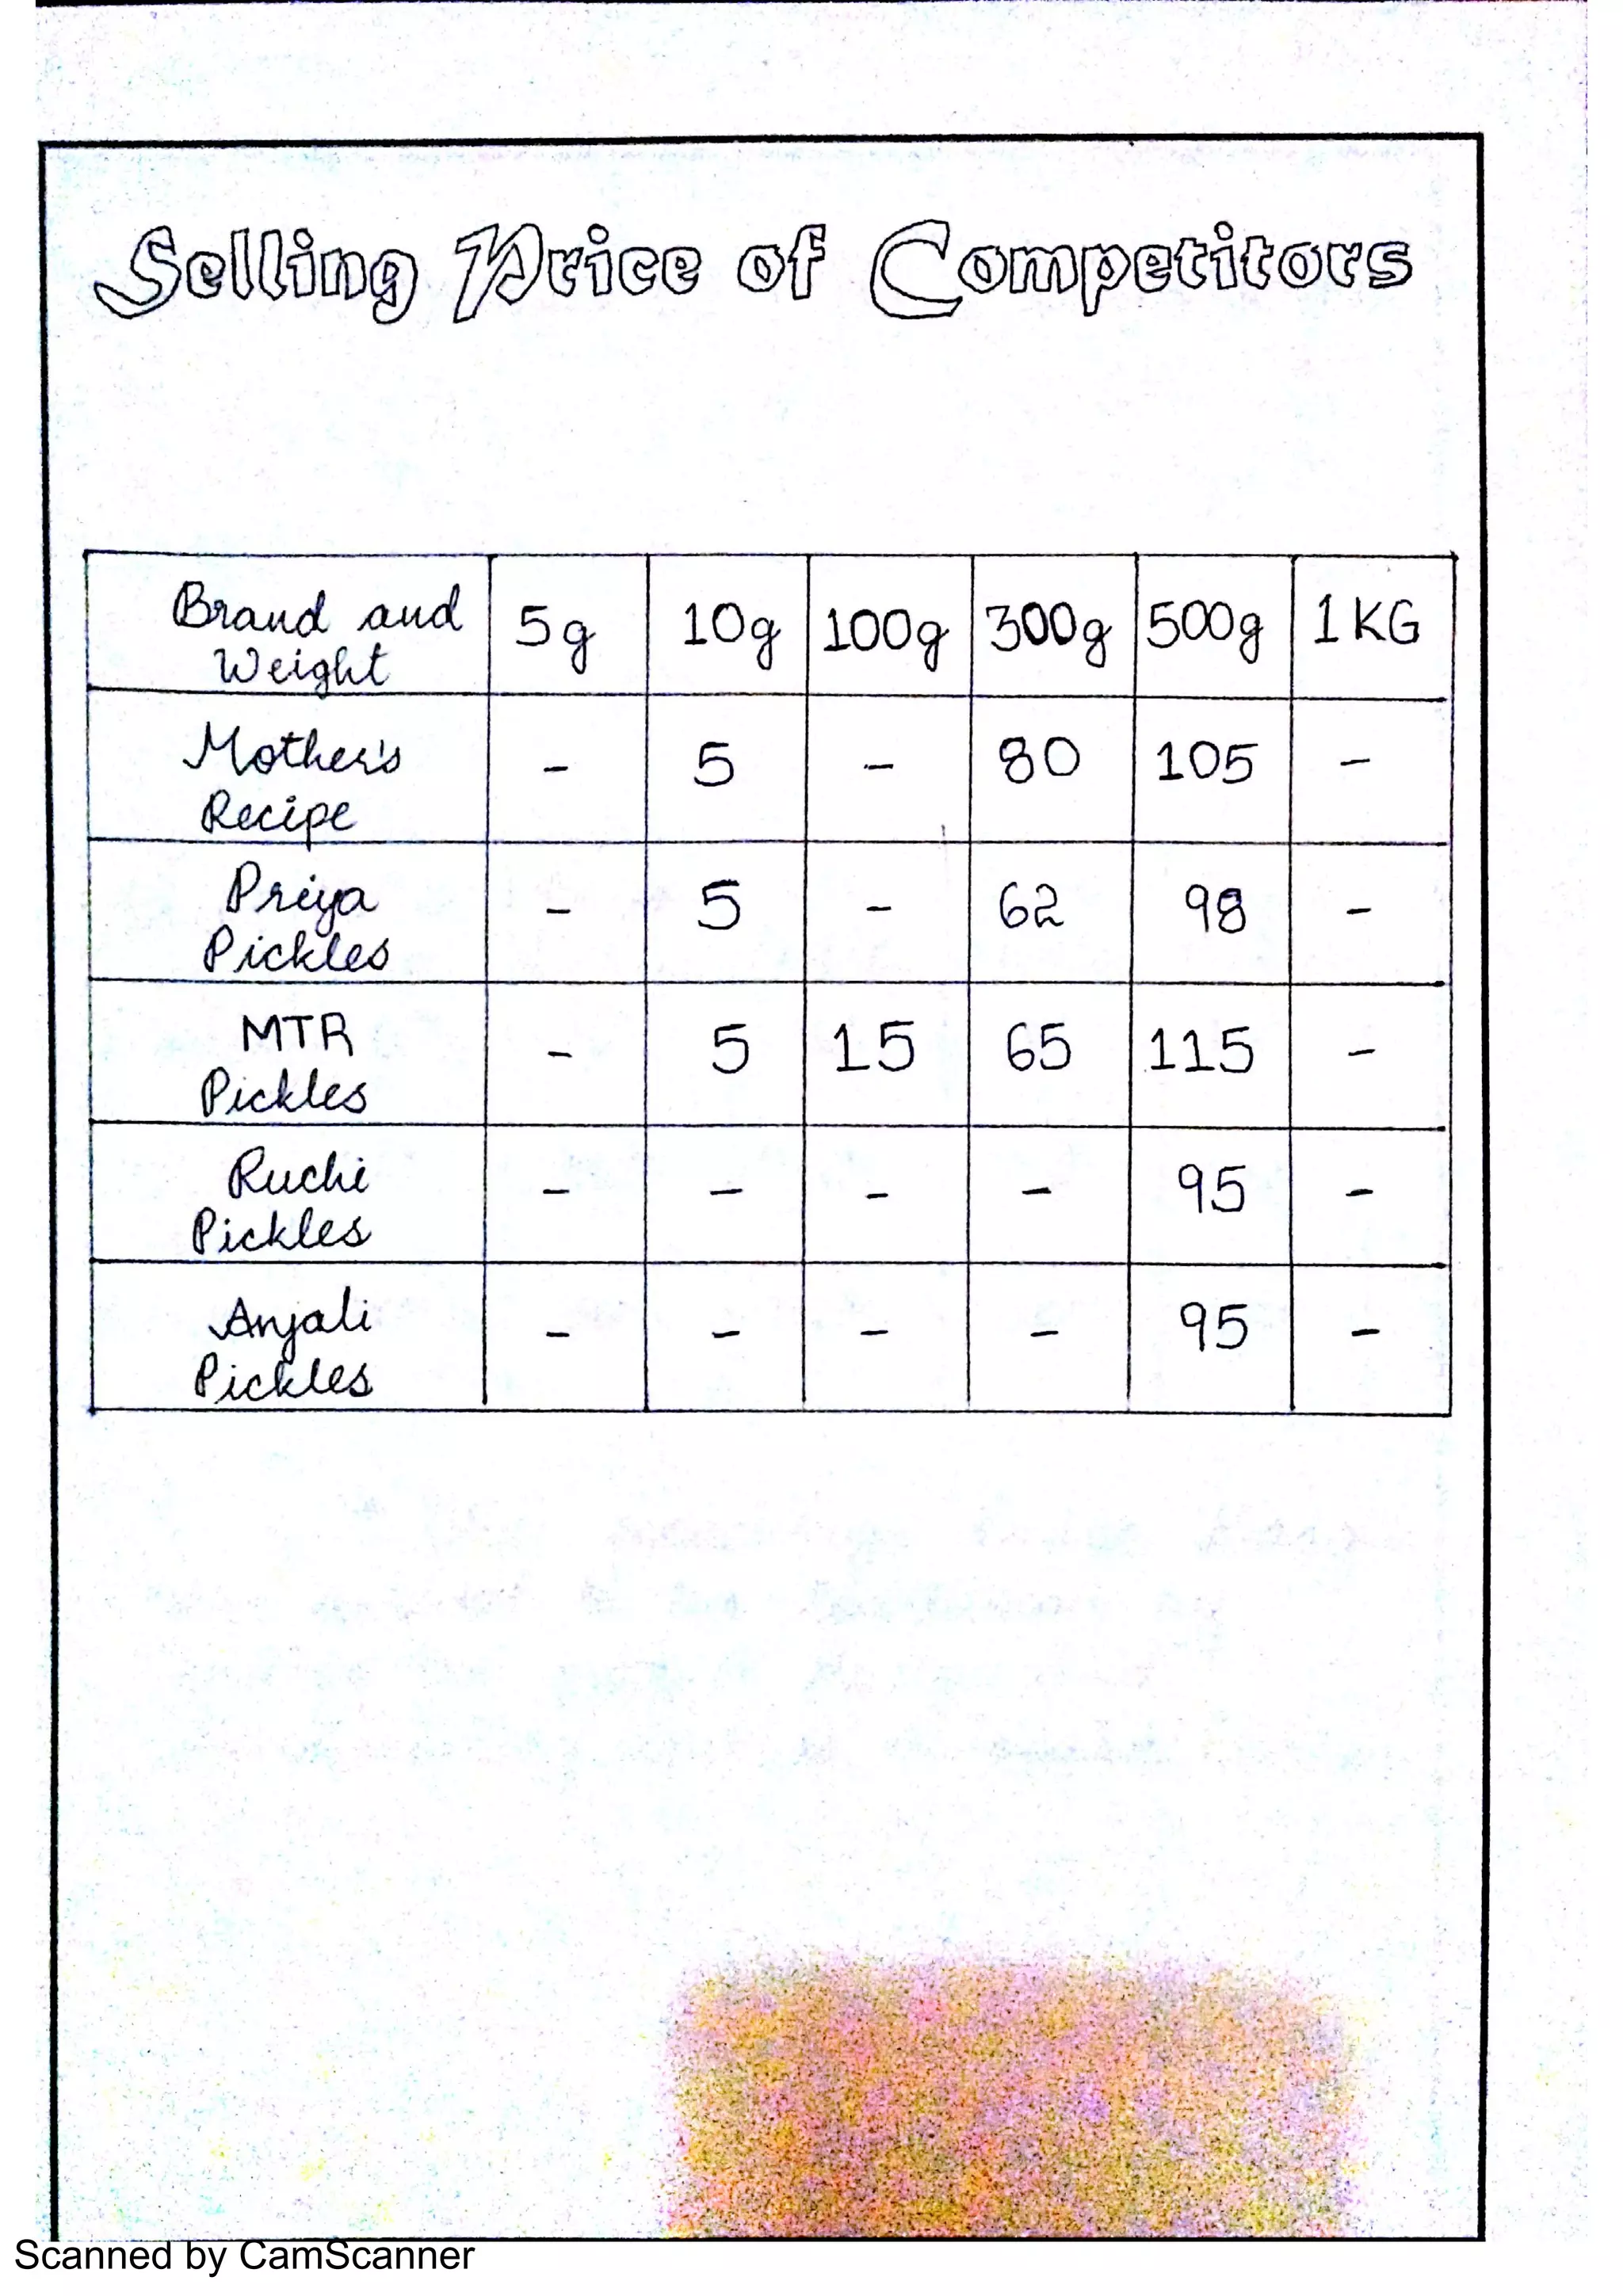 Selling Price of Competitors
Brand and Weight 5g 10g 100g 300g 500g 1KG
Mother's Recipe - 5 - 80 105 -
Priya Pickles - 5 - 62 98 -
MTR Pickles - 5 15 65 115 -
Ruchi Pickles - - - - 95 -
Anjali Pickles - - - - 95 -
Scanned by CamScanner